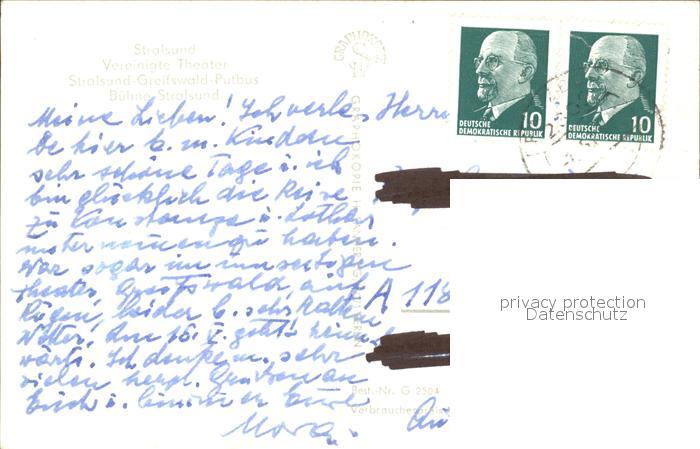 Stralsund
Vereinigte Theater
Stralsund-Greifswald-Putbus
Bühne Stralsund
GRAPHOKOPIE
Meine Lieben! Ich verle-
be hier b. m. Kindern
sehr schöne Tage u. ich
bin glücklich die Reise
zu Konstanze u. Lothar
unternommen zu haben.
War sogar im
Theater, Greifswald, auf
Rügen, leider b. sehr kaltem
Wetter. Am 16. V. geht's heim-
wärts. Ich denke m. sehr
vielen herzl. Grüßen an
Euch u. bin immer Eure
Herrn
A 118
Best.-Nr. G 2504
Verbraucherpreis
DEUTSCHE
DEMOKRATISCHE REPUBLIK
10
DEUTSCHE
DEMOKRATISCHE REPUBLIK
10
privacy protection
Datenschutz